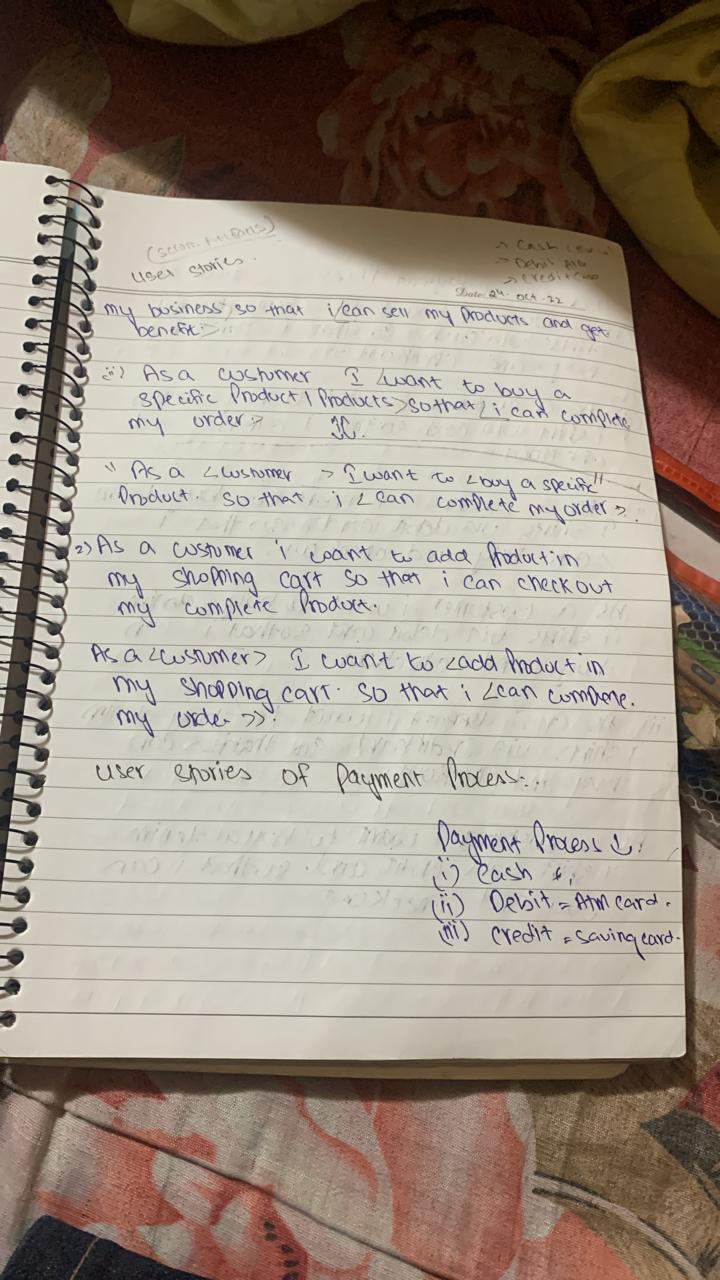 User stories.
-> Cash
-> Debit ATM
-> Credit Card
Date: 24-Oct-22
my business, so that i/can sell my products and get
benefit:>
ii) As a customer I <want to buy a
specific Product/Products> so that/i can complete
my order:>
" As a <customer > I want to <buy a specific"
Product. so that i <can complete my order>.
2) As a customer i want to add Product in
my shopping cart so that i can checkout
my complete Product.
As a <customer> I want to <add Product in
my shopping cart. so that i <can complete.
my order >>.
User stories of Payment Process:.
Payment Process ↓:
(i) Cash
(ii) Debit = Atm card.
(iii) credit = saving card.